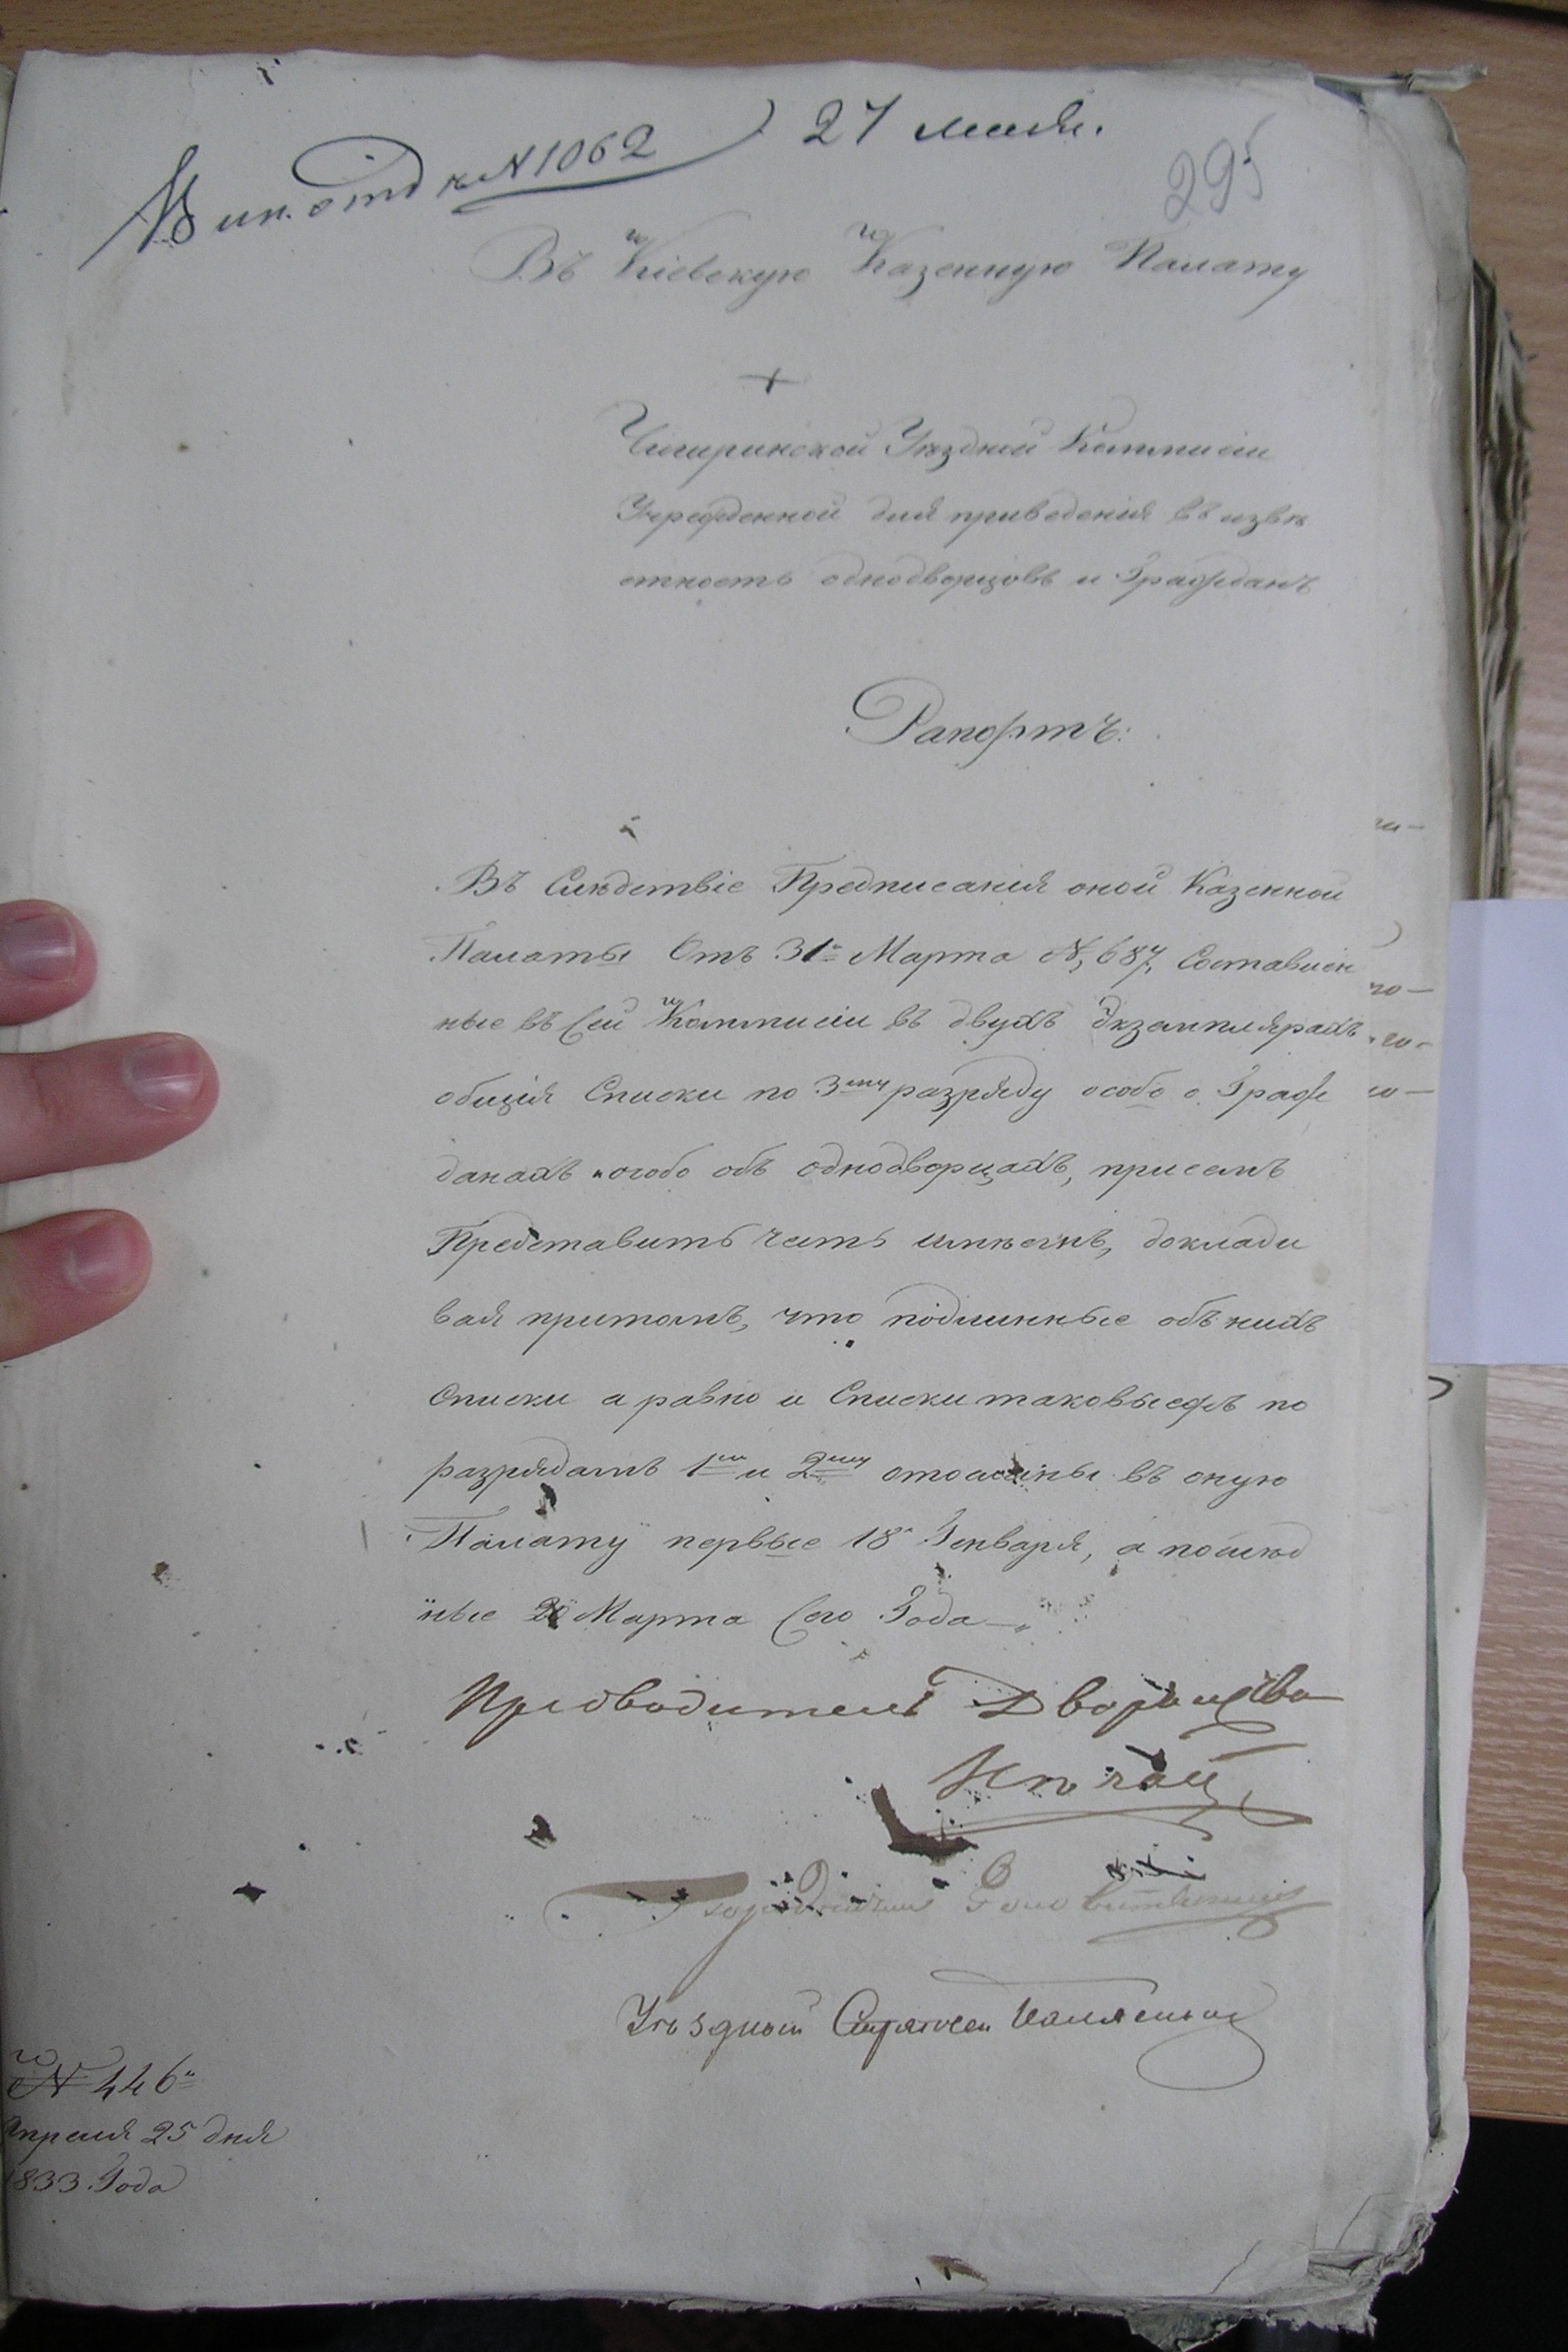 В ик. отд к N 1062 27 маия.
295
Въ Кіевскую Казенную Палату
Чигиринской Уѣздной Коммисіи
Учрежденной для приведенія въ извѣ
стность однодворцовъ и Гражданъ
Рапортъ:
Въ Слѣдствіе Предписанія оной Казенной
Палаты Отъ 31го Марта №, 687, Составлен
ные въ Сей Коммисіи въ двухъ Экземплярахъ
общія Списки по 3му разряду особо о Граж
данахъ и особо объ однодворцахъ, присемъ
Представить честь имѣетъ, доклады
вая притомъ, что подлинные объ нихъ
Списки а равно и Списки таковыежъ по
разрядамъ 1му и 2му отосланы въ оную
Палату первые 18го Генваря, а послѣд
ніе Марта Сего Года
Предводитель Дворянства
Нечай
Городничій
Уѣздный Стряпчей
№ 446
Апреля 25 дня
1833 Года